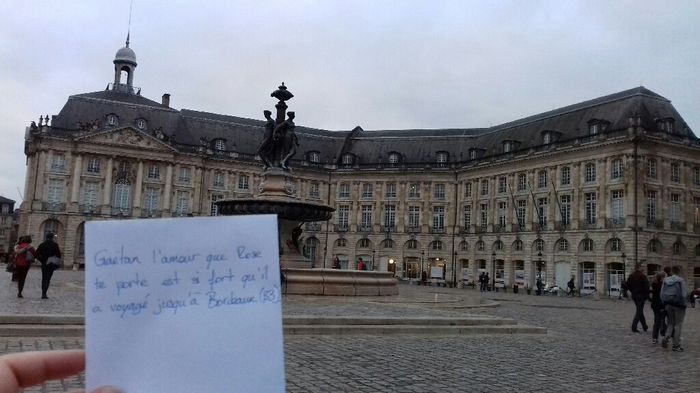 Gaetan l'amour que Rose
te porte est si fort qu'il
a voyagé jusqu'à Bordeaux (33)